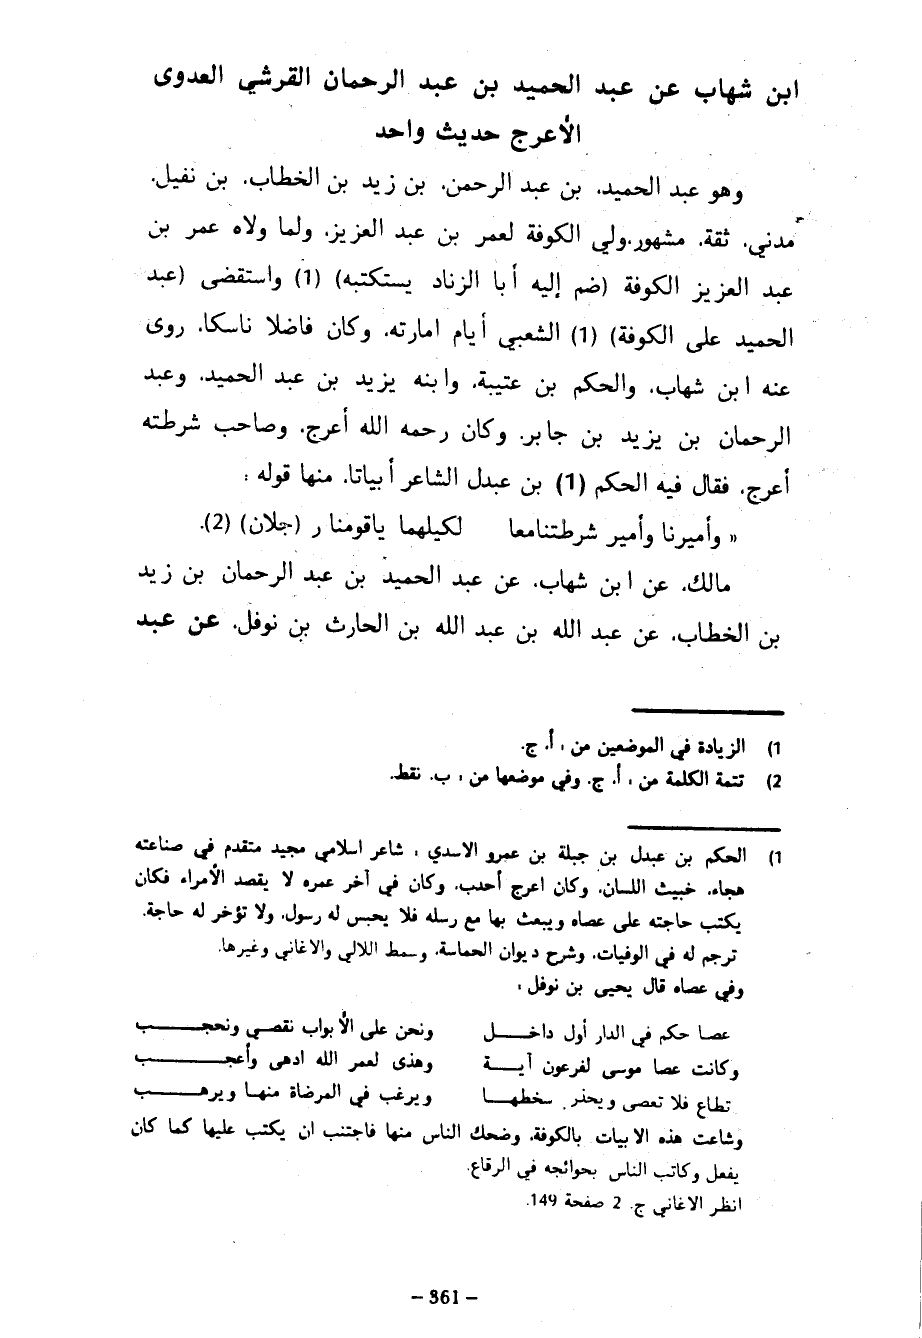 ابن شهاب عن عبد الحميد بن عبد الرحمان القرشي العدوى
الأعرج حديث واحد
وهو عبد الحميد، بن عبد الرحمن، بن زيد بن الخطاب، بن نفيل،
مدني، ثقة، مشهور،ولي الكوفة لعمر بن عبد العزيز، ولما ولاه عمر بن
عبد العزيز الكوفة (ضم إليه أبا الزناد يستكتبه) (1) واستقضى (عبد
الحميد على الكوفة) (1) الشعبي أيام امارته، وكان فاضلا ناسكا، روى
عنه ابن شهاب، والحكم بن عتيبة، وابنه يزيد بن عبد الحميد، وعبد
الرحمان بن يزيد بن جابر. وكان رحمه الله أعرج، وصاحب شرطته
أعرج، فقال فيه الحكم (1) بن عبدل الشاعر أبياتا، منها قوله :
« وأميرنا وأمير شرطتنامعا لكيلهما ياقومنا ر (جلان) (2).
مالك، عن ابن شهاب، عن عبد الحميد بن عبد الرحمان بن زيد
بن الخطاب، عن عبد الله بن عبد الله بن الحارث بن نوفل، عن عبد
1) الزيادة في الموضعين من : أ. ج.
2) تتمة الكلمة من : أ. ج. وفي موضعها من : ب. نقط.
1) الحكم بن عبدل بن جبلة بن عمرو الاسدي : شاعر اسلامي مجيد متقدم في صناعته
هجاء، خبيث اللسان، وكان اعرج أحدب، وكان في آخر عمره لا يقصد الأمراء فكان
يكتب حاجته على عصاه ويبعث بها مع رسله فلا يحبس له رسول، ولا تؤخر له حاجة.
ترجم له في الوفيات، وشرح ديوان الحماسة، وسمط اللالي والاغاني وغيرها.
وفي عصاه قال يحيى بن نوفل :
عصا حكم في الدار أول داخــل ونحن على الأبواب نقصي ونحجــب
وكانت عصا موسى لفرعون آيــة وهذى لعمر الله ادهى وأعجــب
تطاع فلا تعصى ويحذر سخطهــا ويرغب في المرضاة منهـا ويرهــب
وشاعت هذه الابيات بالكوفة، وضحك الناس منها فاجتنب ان يكتب عليها كما كان
يفعل وكاتب الناس بحوائجه في الرقاع.
انظر الاغاني ج. 2 صفحة 149.
– 361 –